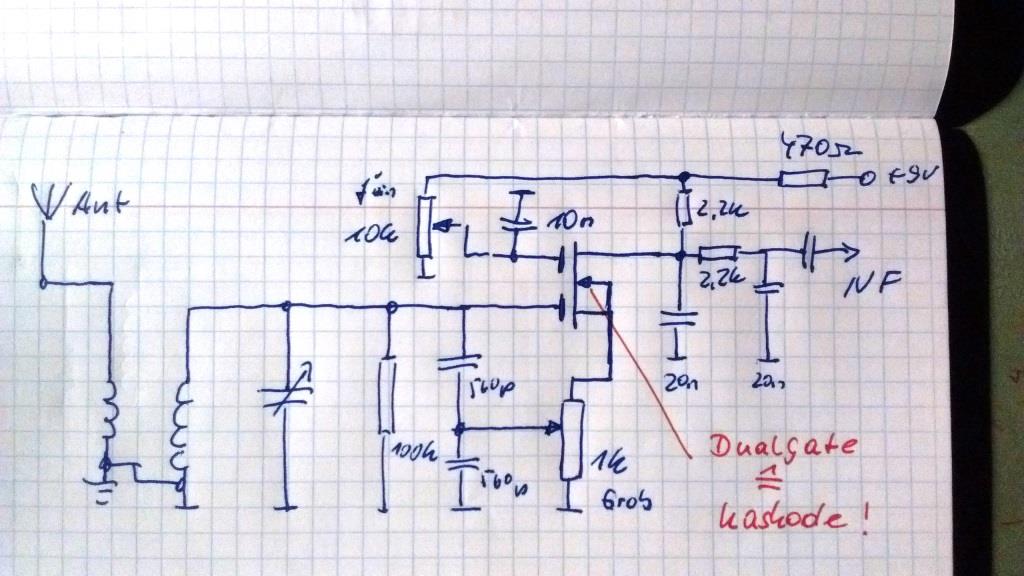 470Ω
+9V
Ant
fein
10k
10n
2,2k
2,2k
NF
560p
20n
20n
100k
560p
1k
Grob
Dualgate
≙
Kaskode!